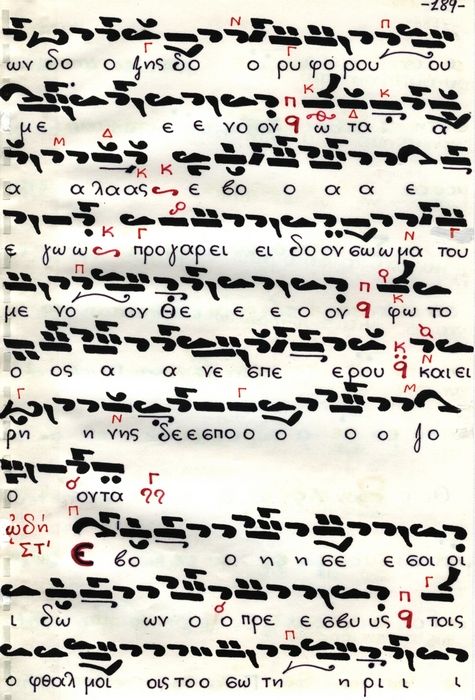 -189-
ων δο ο ξης δο ο ρυ φο ρου ου
με ε ε νο ον ω τα α
α α λα ας ε βο ο α α ε
ε γω ω προ γαρ ει ει δο ον σω ω μα του
με νο ον Θε ε ε ο ον φω το
ο ος α α νε σπε ε ρου και ει
ρη η νης δε ε σπο ο ο ο ο ζο
ο οντα
ᾠδὴ
ΣΤ'
Ε βο ο η η σε ε σοι οι
ι δω ων ο ο πρε ε σβυ υς τοις
ο φθαλ μοι οις το ο σω τη η ρι ι ι